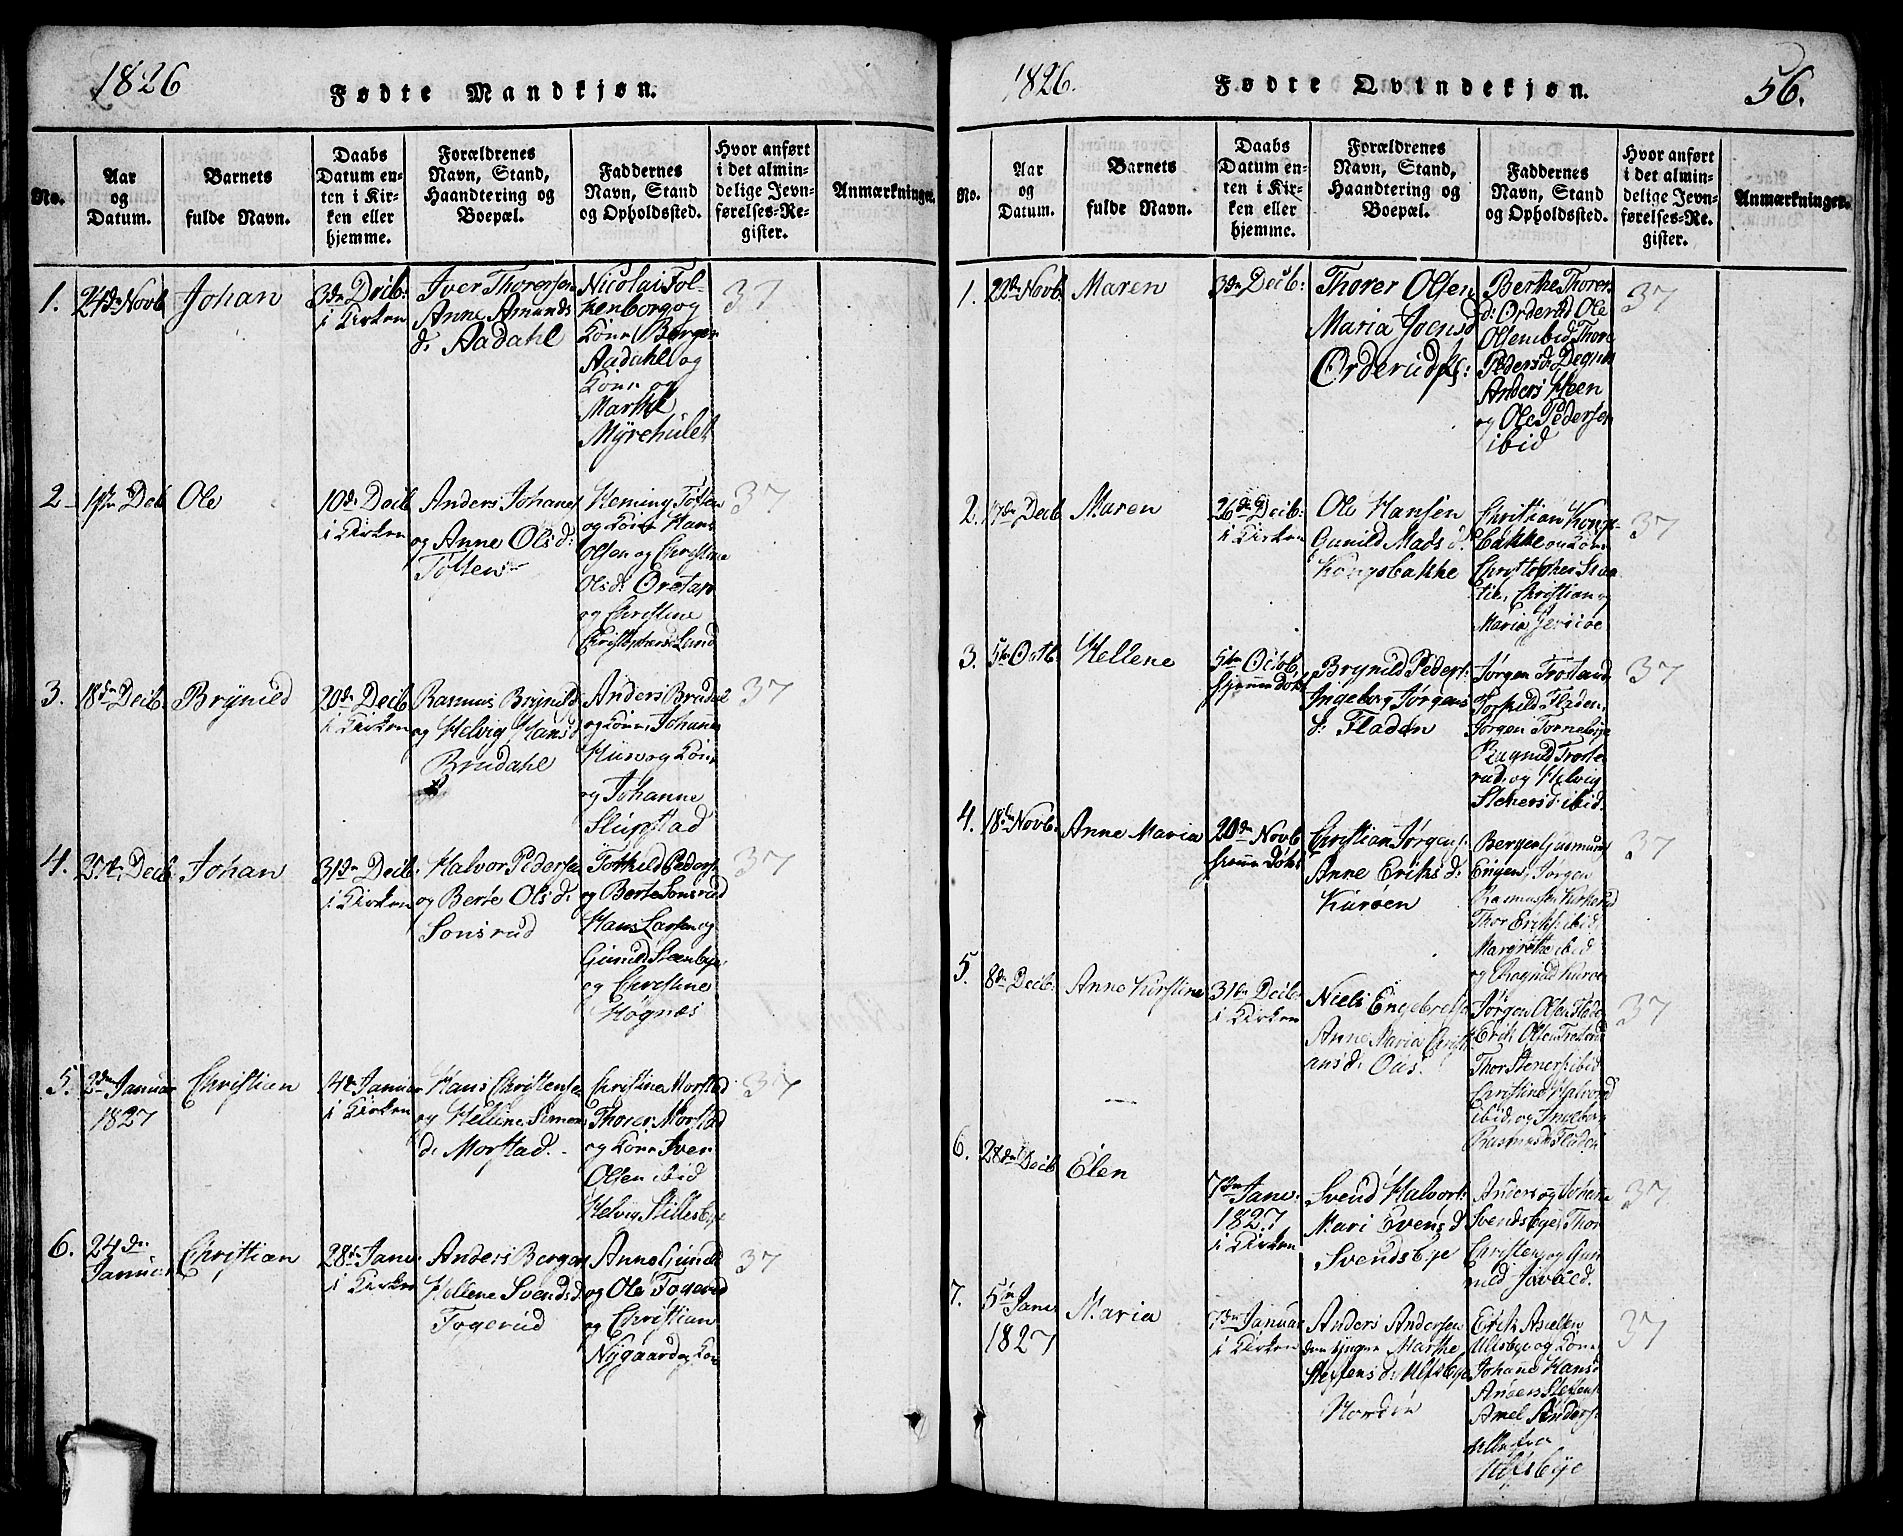 1826
Fødte Mandkjøn.
No.
Aar
og
Datum.
Barnets
fulde Navn.
Daabs
Datum en-
ten i Kir-
ken eller
hjemme.
Forældrenes
Navn, Stand,
Haandtering og
Boepæl.
Faddernes
Navn, Stand
og Opholdssted.
Hvor anført
i det almin-
delige Jevn-
førelses-Re-
gister.
Anmærkninger.
1.
24de Novb
Johan
3de Decb:
i Kirken
Iver Thorersen
Anne Amunds
d: Aadahl
Nicolai Fol-
kenborg og
Kone Borger
Aadahl og
Kone og
Marthe
Myrehulet
37
2
Ole
10de Decb
i Kirken
Anders Johanes
og Anne Olsd:
Toften
Heming Toften
og Kone Hans
Olsen og Christine
Olsd:
og Christine
Lund
37
3.
18de Decb.
Brynild
20de Decb
i Kirken
Rasmus Brynilds
og Helvig Hansd
Brudahl
Anders Brudal
og Kone, Johanne
og Kone
og Johanne
Slupstad
37
4.
Decb
Johan
31de Decb:
i Kirken
Halvor Pedersen
og Berte Olsd:
Sonsrud
Torkild Peders:
og Berte Sonsrud
Hans Larsen og
Gunild Steenbye
og Christine
Høgnæs
37
5.
2den Januar
1827
Christian
14de Januar
i Kirken
Hans Christensen
og Hellene Simens
d: Morstad.
Christine Morstad
Thorer Morstad
og Kone Iver
Olsen ibid
Helvig Stillesbye
37
6.
24de
Januar
Christian
28de Janu:
i Kirken
Anders Berger
Hellene Svendsd.
Togerud
Anne Gunild
og Ole Togerud
og Christian
Nygaard og Kone
37
1826.
Fødte Qvindekjøn.
56.
No.
Aar
og
Datum.
Barnets
fulde Navn.
Daabs
Datum en-
ten i Kir-
ken eller
hjemme.
Forældrenes
Navn, Stand,
Haandtering og
Boepæl.
Faddernes
Navn, Stand
og Opholdssted.
Hvor anført
i det almin-
delige Jevn-
førelses-Re-
gister.
Anmærkninger.
1.
22de Novb.
Maren
3de Decb:
Thorer Olsen
Maria Joensd
Orderud
Berthe Thorer
d: Orderud Ole
Olsen ibid Thore
Pedersd
Anders Heen
og Ole Pedersen
ibid
37
2.
17de Decb
Maren
26de Decb:
i Kirken
Ole Hansen
Gunild Mads d:
Kongsbakke
Christian Kongs-
bakke og Kone
Christopher
Christian og
Maria
37
3.
5te Octb.
Hellene
5te Octob.
hjemmedøbt
Brynild Peders:
Ingeborg Jørgens
d: Fladen
Jørgen Trosterud
Torkild Fladen,
Jørgen Tornebye
Ragnild Troste-
rud, og Helvig
ibid.
37
4.
18de Novb.
Anne Maria
20de Novb
Christian Jørgens:
Anne Eriks d:
Kurøen
Berger
Engen, Jørgen
Rasmussen
Thor Eriks: ibid.
Margrethe ibid
og Ragnild Kurøe
37
5.
8de Decb:
Anne Kirstine
31te Decb:
i Kirken
Niels Engebretsen
Anne Maria Christi
ansd: Ous.
Jørgen Olsen Flade
Erik Olsen Trosterud
Thor Steners: ibid
Christine Halvord
ibid, og Ingeborg
Rasmusd: Fladen
37
6.
28de Decb
Elen
7de Janu.
1827
i Kirken
Svend Halvors:
Mari Evensd
Svendsbye
Anders og Johanne
Svendsbye, Thor
Christens: og Gu-
nild
37
7.
5te Janu.
1827
Maria
7de Januar
i Kirken
Anders Andersen
den yngre Marthe
Steffensd: Ulfsbye
Nordre
Erik Axelsen
Ulfsbye og Kone
Johanne Hansd
Anders Steffens:
Amel Anders:
alle fra
Ulfsbye
37